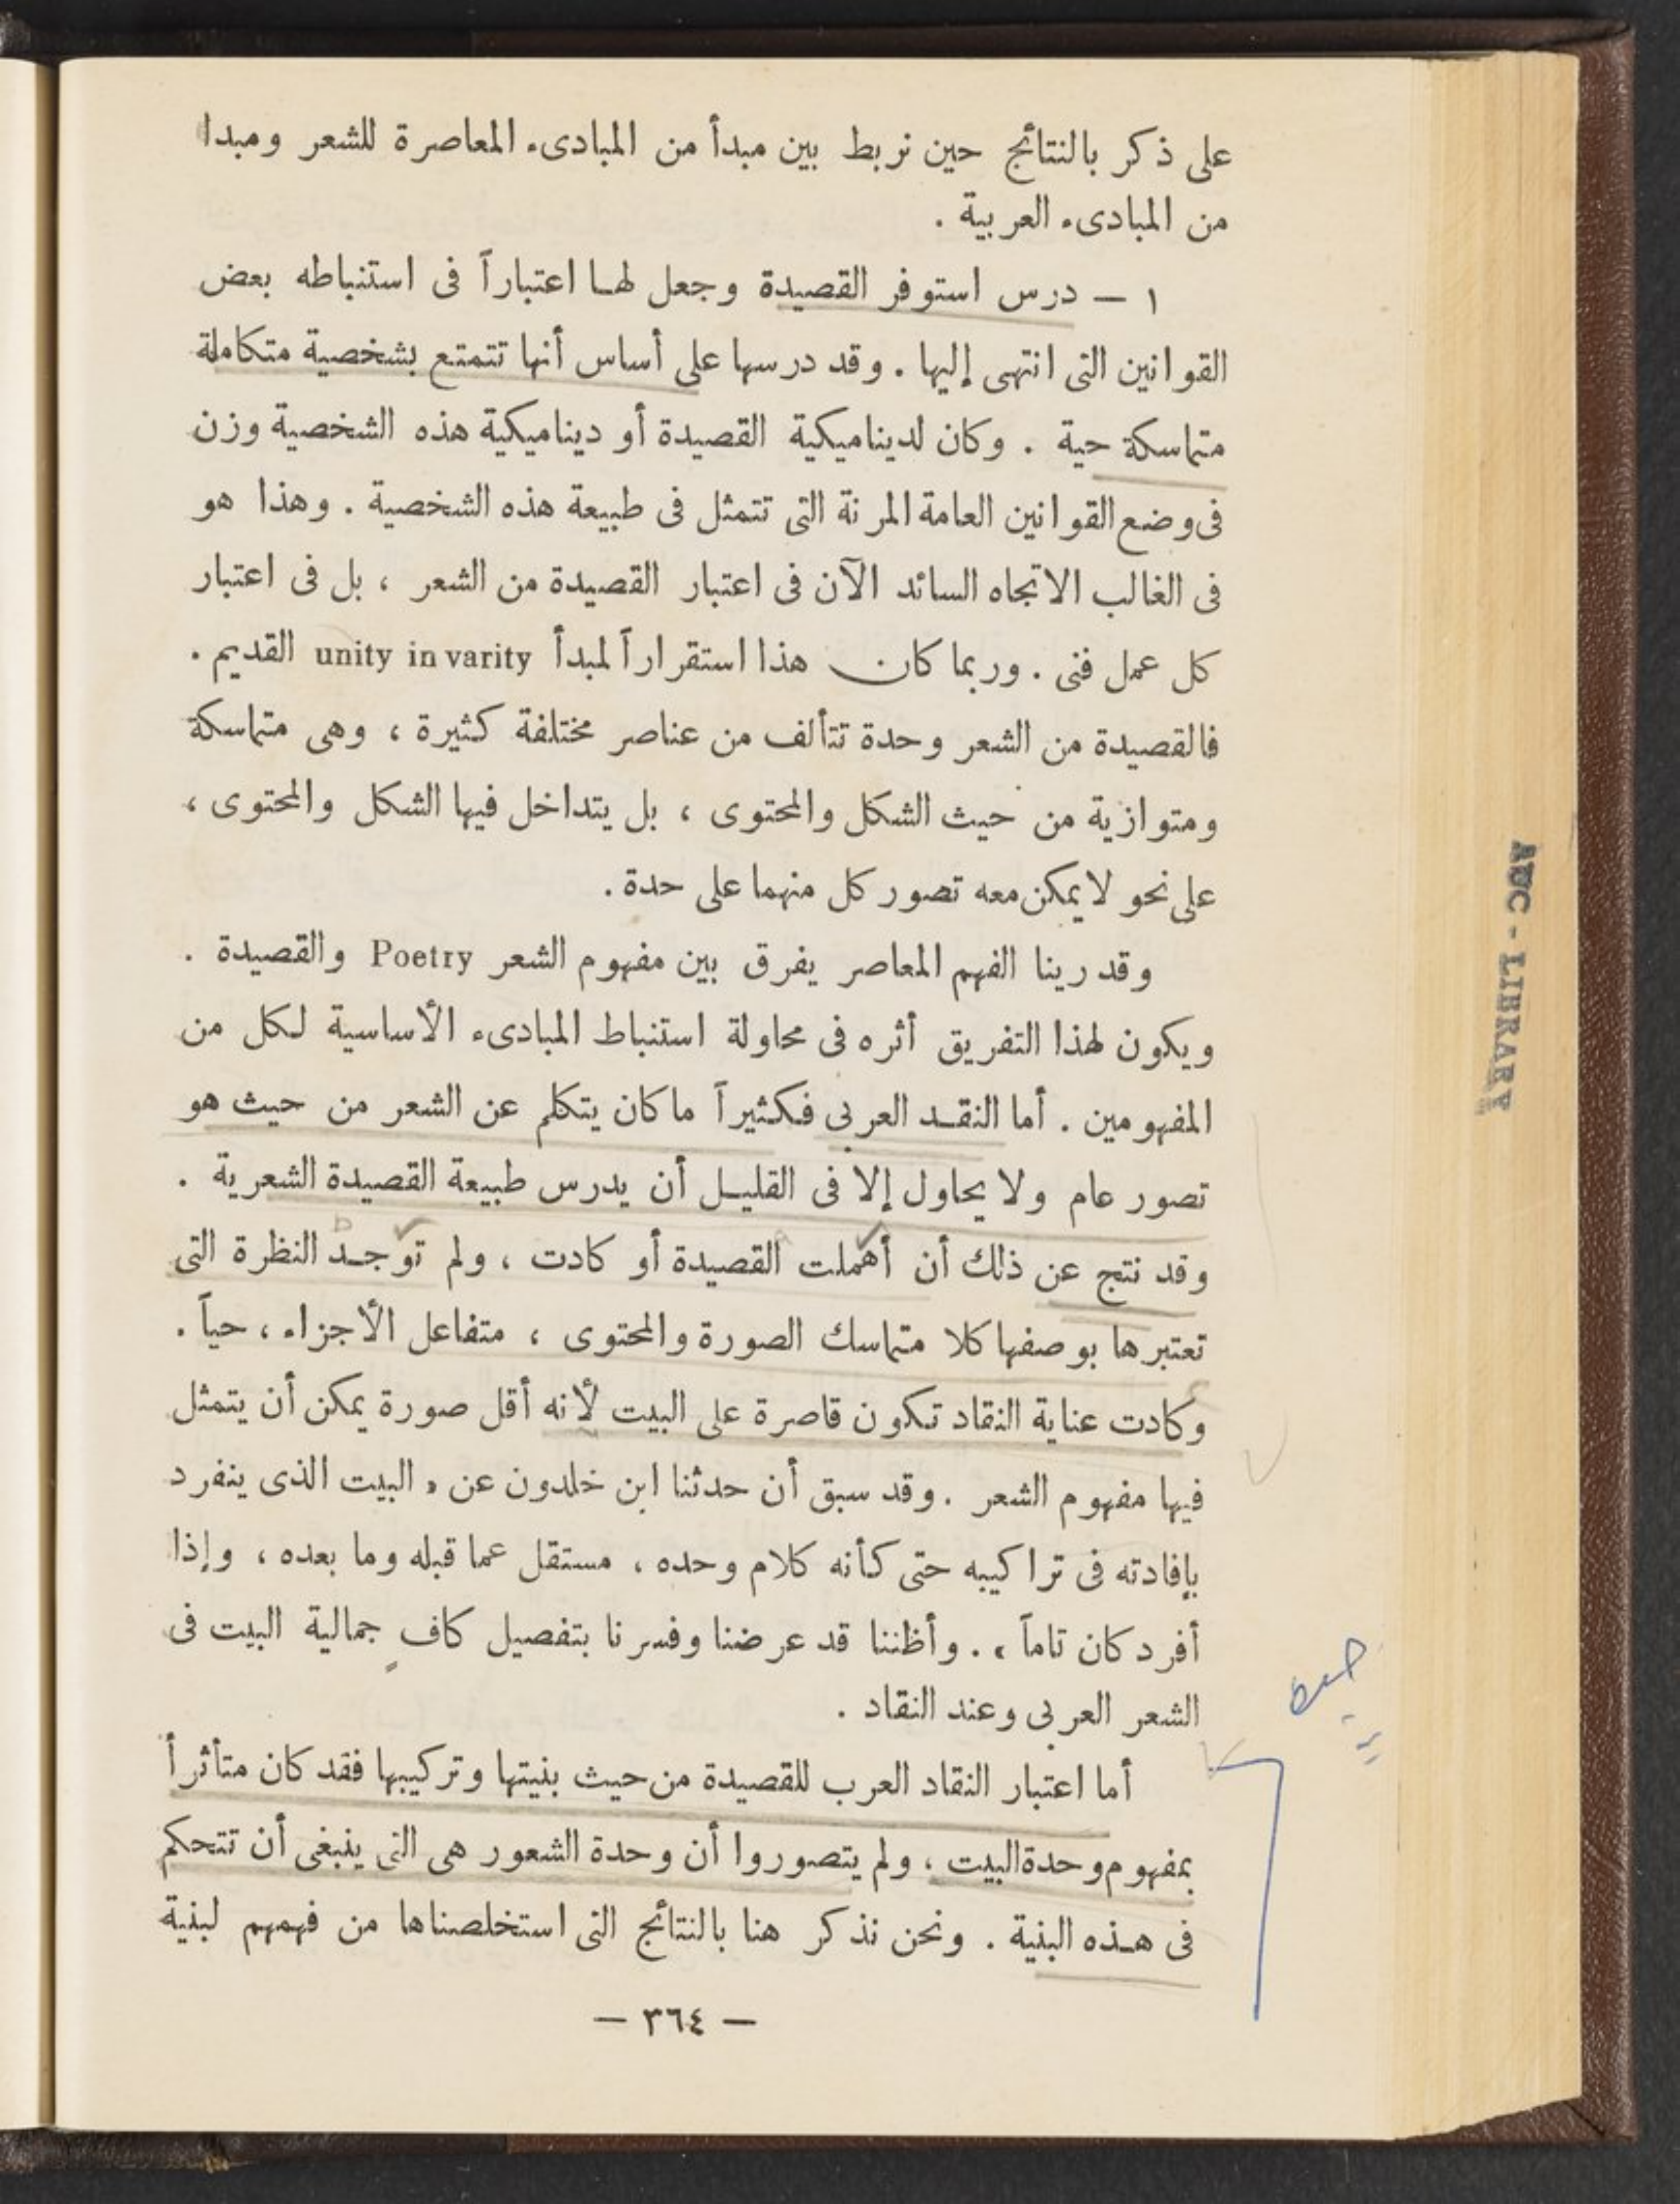 على ذكر بالنتائج حين نربط بين مبدأ من المبادىء المعاصرة للشعر ومبدا
من المبادىء العربية .
١ — درس استوفر القصيدة وجعل لها اعتباراً فى استنباطه بعض
القوانين التى انتهى إليها . وقد درسها على أساس أنها تتمتع بشخصية متكاملة
متماسكة حية . وكان لديناميكية القصيدة أو ديناميكية هذه الشخصية وزن
فى وضع القوانين العامة المرنة التى تتمثل فى طبيعة هذه الشخصية . وهذا هو
فى الغالب الاتجاه السائد الآن فى اعتبار القصيدة من الشعر ، بل فى اعتبار
كل عمل فنى . وربما كان هذا استقراراً لمبدأ unity in varity القديم .
فالقصيدة من الشعر وحدة تتألف من عناصر مختلفة كثيرة ، وهى متماسكة
ومتوازية من حيث الشكل والمحتوى ، بل يتداخل فيها الشكل والمحتوى ،
على نحو لا يمكن معه تصور كل منهما على حدة .
وقد رينا الفهم المعاصر يفرق بين مفهوم الشعر Poetry والقصيدة .
ويكون لهذا التفريق أثره فى محاولة استنباط المبادىء الأساسية لكل من
المفهومين . أما النقد العربى فكثيراً ما كان يتكلم عن الشعر من حيث هو
تصور عام ولا يحاول إلا فى القليل أن يدرس طبيعة القصيدة الشعرية .
وقد نتج عن ذلك أن أهملت القصيدة أو كادت ، ولم توجد النظرة التى
تعتبرها بوصفها كلا متماسك الصورة والمحتوى ، متفاعل الأجزاء ، حياً .
وكادت عناية النقاد تكون قاصرة على البيت لأنه أقل صورة يمكن أن يتمثل
فيها مفهوم الشعر . وقد سبق أن حدثنا ابن خلدون عن « البيت الذى ينفرد
بإفادته فى تراكيبه حتى كأنه كلام وحده ، مستقل عما قبله وما بعده ، وإذا
أفرد كان تاماً » . وأظننا قد عرضنا وفسرنا بتفصيل كافٍ جمالية البيت فى
الشعر العربى وعند النقاد .
أما اعتبار النقاد العرب للقصيدة من حيث بنيتها وتركيبها فقد كان متأثراً
بمفهوم وحدة البيت ، ولم يتصوروا أن وحدة الشعور هى التى ينبغى أن تتحكم
فى هذه البنية . ونحن نذكر هنا بالنتائج التى استخلصناها من فهمهم لبنية
— ٣٦٤ —
AUC - LIBRARY